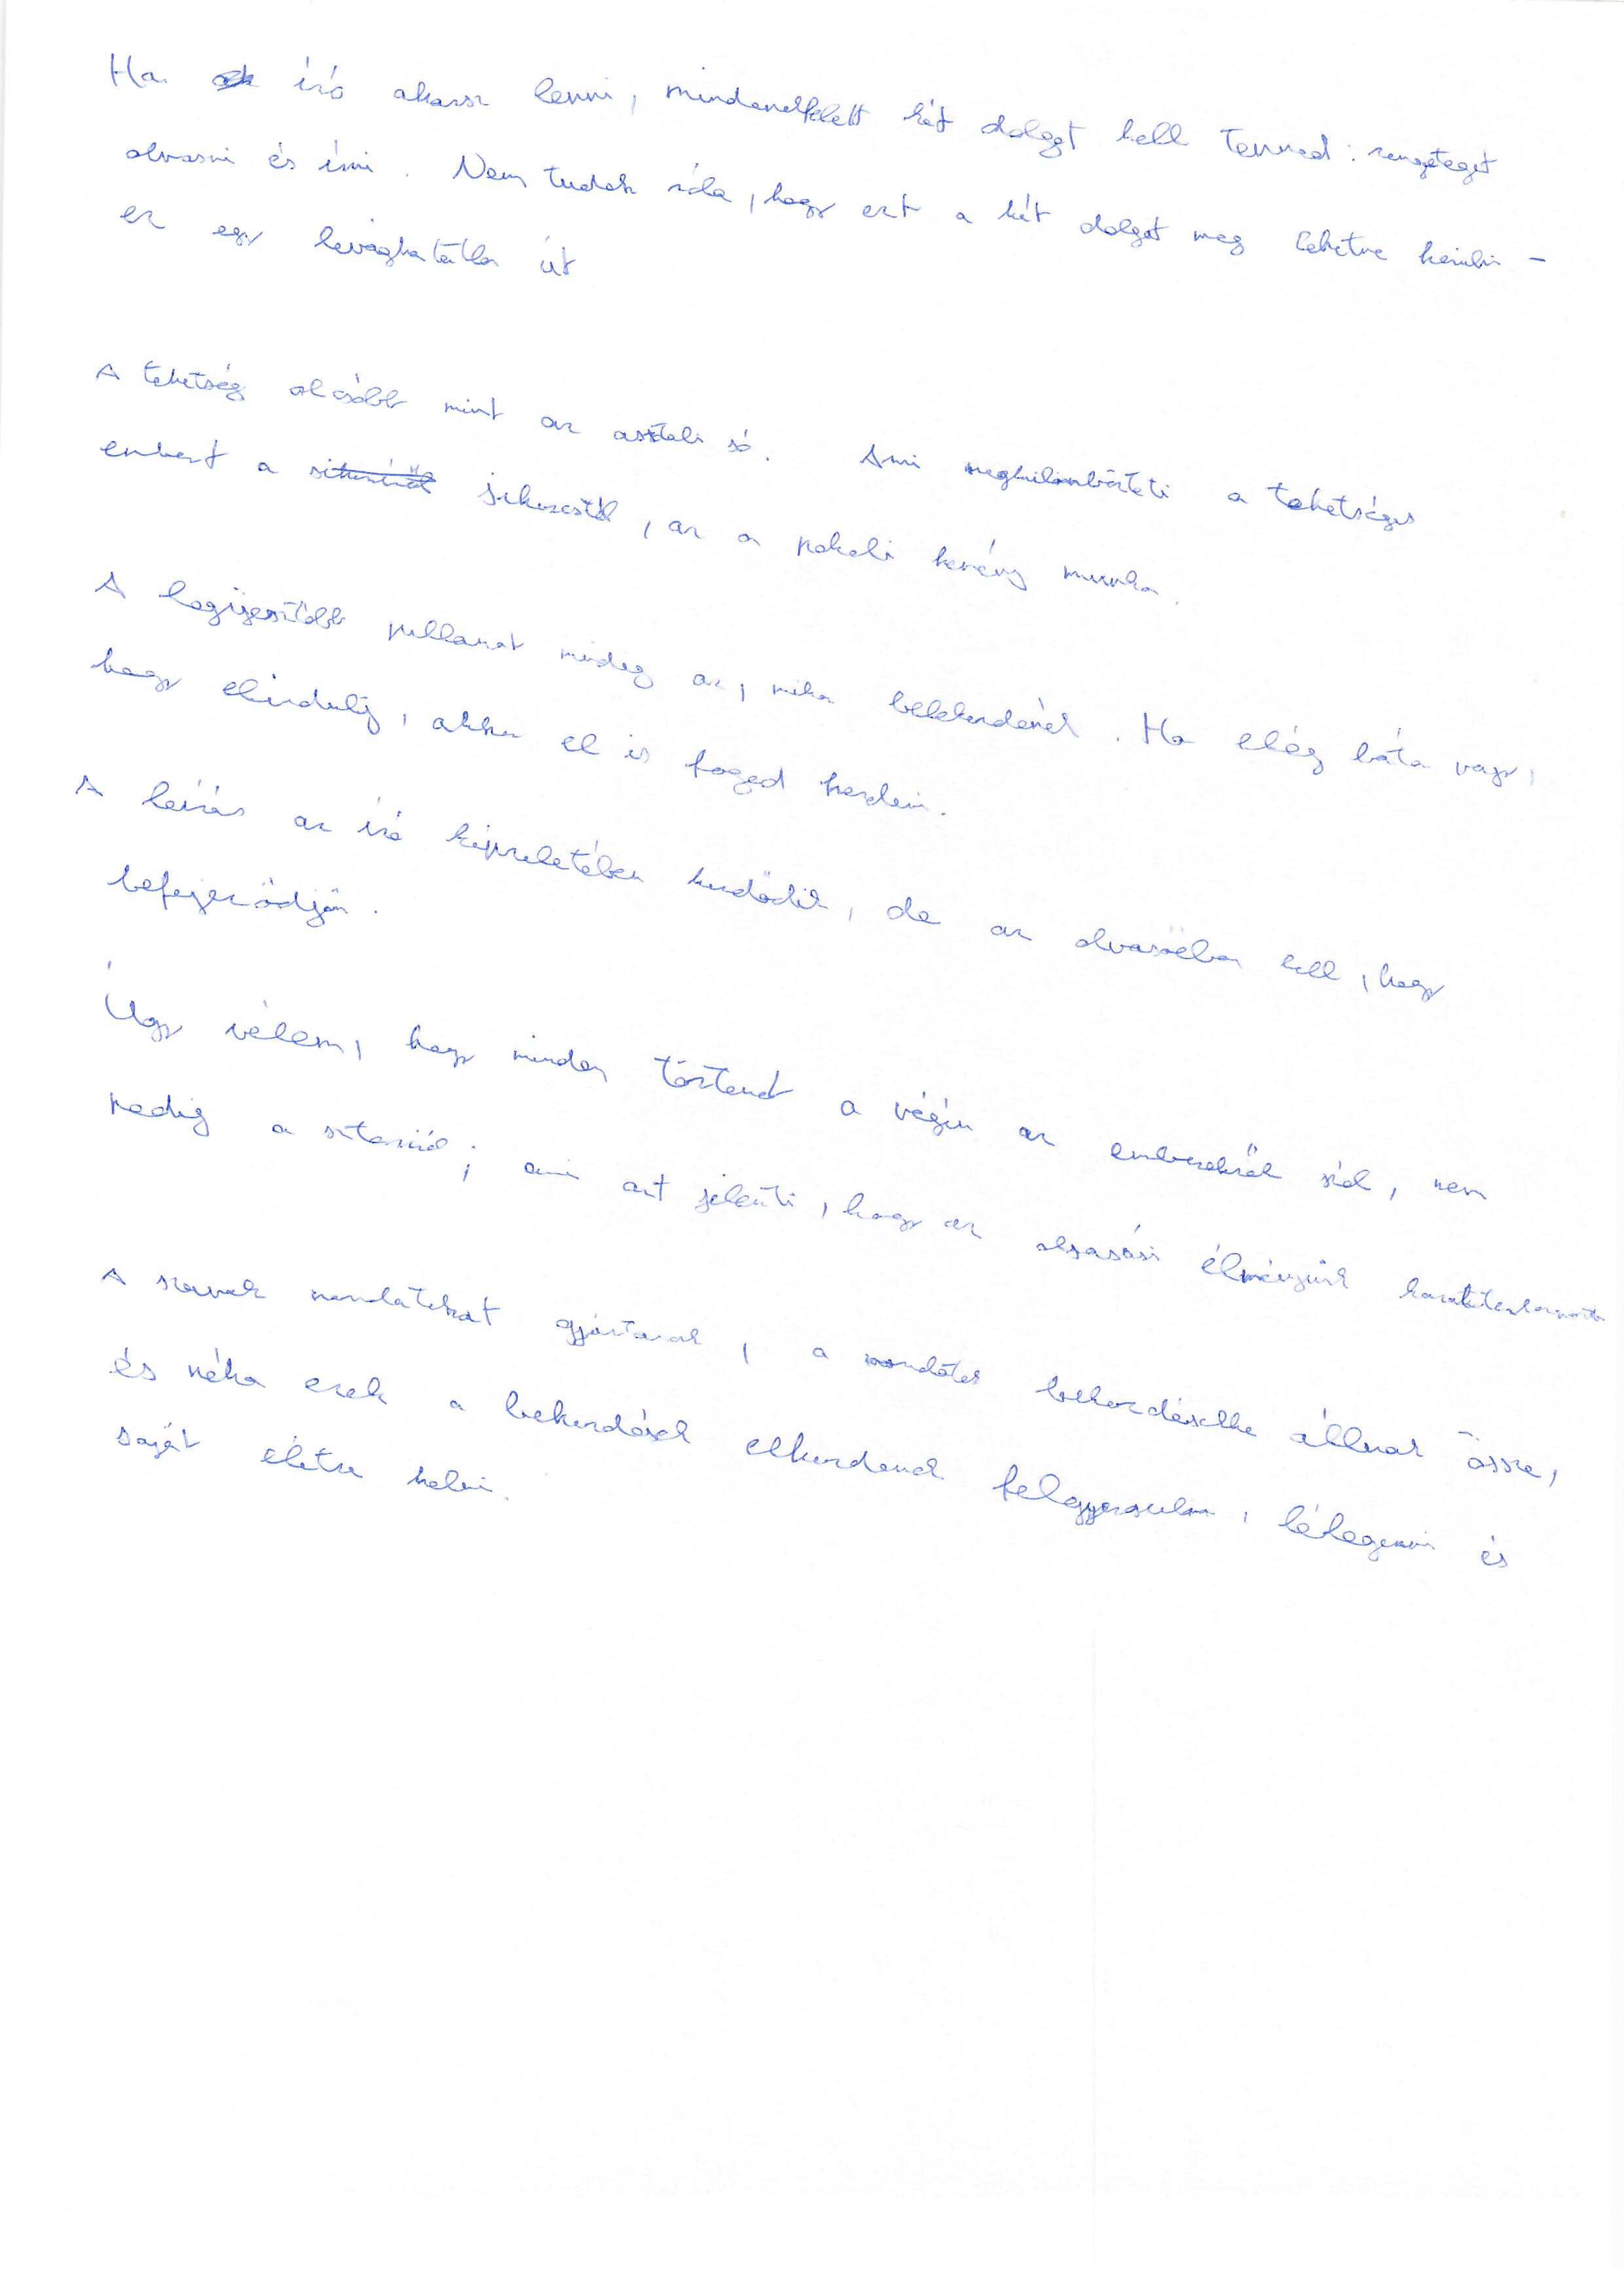 Ha író akarsz lenni, mindenekfelett két dolgot kell tenned: rengeteget
olvasni és írni. Nem tudok róla, hogy ezt a két dolgot meg lehetne kerülni -
ez egy levághatatlan út
A tehetség olcsóbb mint az asztali só. Ami megkülönbözteti a tehetséges
embert a sikerestől, az a pokoli kemény munka.
A legijesztőbb pillanat mindig az, mikor belekezdenél. Ha elég bátor vagy,
hogy elindulj, akkor el is fogod kezdeni.
A leírás az író képzeletében kezdődik, de az olvasóéban kell, hogy
befejeződjön.
Úgy vélem, hogy minden történet a végén az emberekről szól, nem
pedig a sztoriról; ami azt jelenti, hogy az olvasási élményünk
A szavak mondatokat gyártanak, a mondatok bekezdésekbe állnak össze,
és néha ezek a bekezdések elkezdenek felgyorsulni, lélegezni és
saját életre kelni.